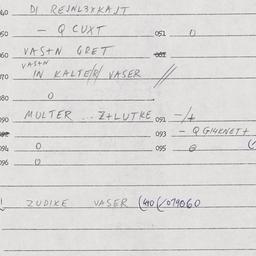 040 DI REJNL3XKAJT
050 - Q CUXT 051 0
060 VAS+N GRET 061
VAS+N
070 IN KALTE/R/ VASER //
080 0
090 MULTER ... Z+LUTKE 091 -/+
092 093 - Q GI4KNET+
094 0 095 0
096 0
ZUDIKE VASER (40(/079060